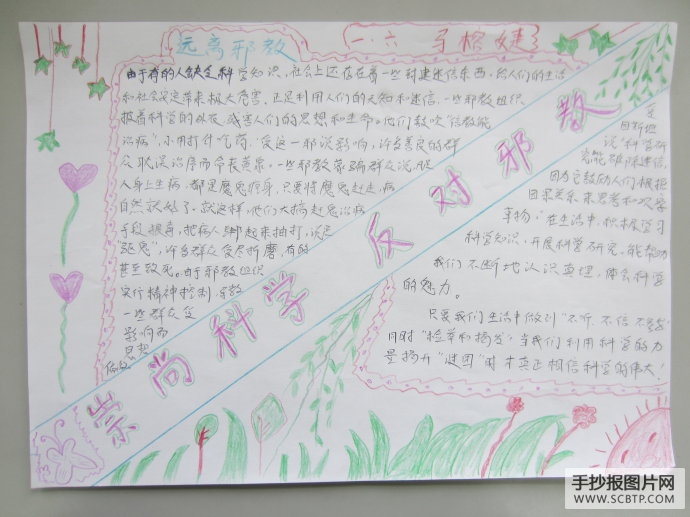 远离邪教
一.六 马榕婕
由于有的人缺乏科学知识,社会上还存在着一些封建迷信东西,给人们的生活
和社会安定带来极大危害.正是利用人们的无知和迷信,一些邪教组织
披着科学的外衣,残害人们的思想和生命.他们鼓吹"信教能
治病",不用打针吃药.受这一邪说影响,许多善良的群
众耽误治疗而命丧黄泉.一些邪教蒙骗群众说,
人身上生病,都是魔鬼附身,只要将魔鬼赶走,病
自然就好了.就这样,他们大搞赶鬼治病
手段狠毒,把病人绑起来抽打,说是
"驱鬼",许多群众受尽折磨,有的
甚至致死.由于邪教组织
实行精神控制,
一些群众受
影响而
崇尚科学 反对邪教
说"科学研
究能破除迷信,
因为它鼓励人们根据
因果关系来思考和观察
事物."在生活中,积极学习
科学知识,开展科学研究,能帮助
我们不断地认识真理,体会科学
的魅力。
只要我们生活中做到"不听.不信.不
同时"检举和揭发".当我们利用科学的力
量揭开"谜团"时才真正相信科学的伟大!
手抄报图片网
WWW.SCBTP.COM